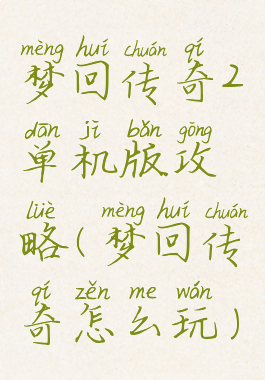 mèng huí chuán qí
梦回传奇2
dān jī bǎn gōng
单机版攻
lüè mèng huí chuán
略(梦回传
qí zěn me wán
奇怎么玩)